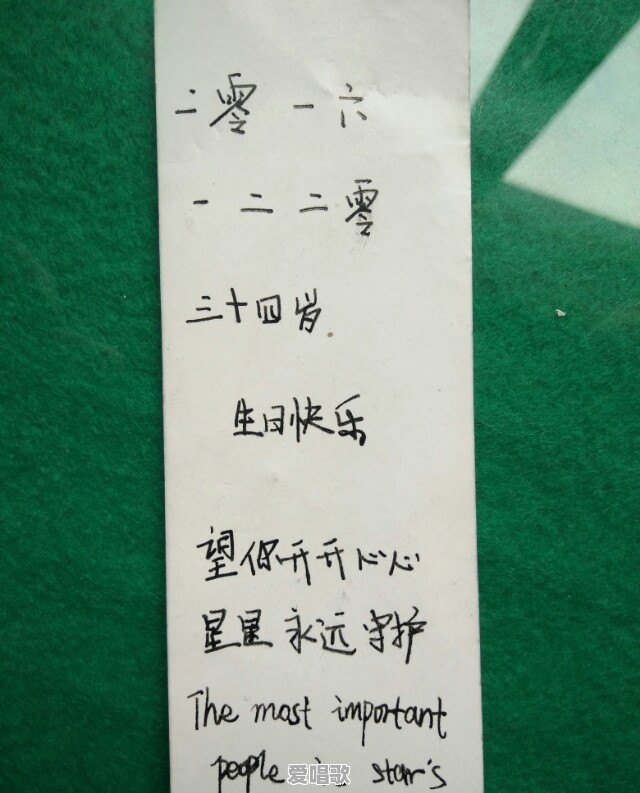 二零一六
一二二零
三十四岁
生日快乐
望你开开心心
星星永远守护
The most important
people is star's
爱唱歌